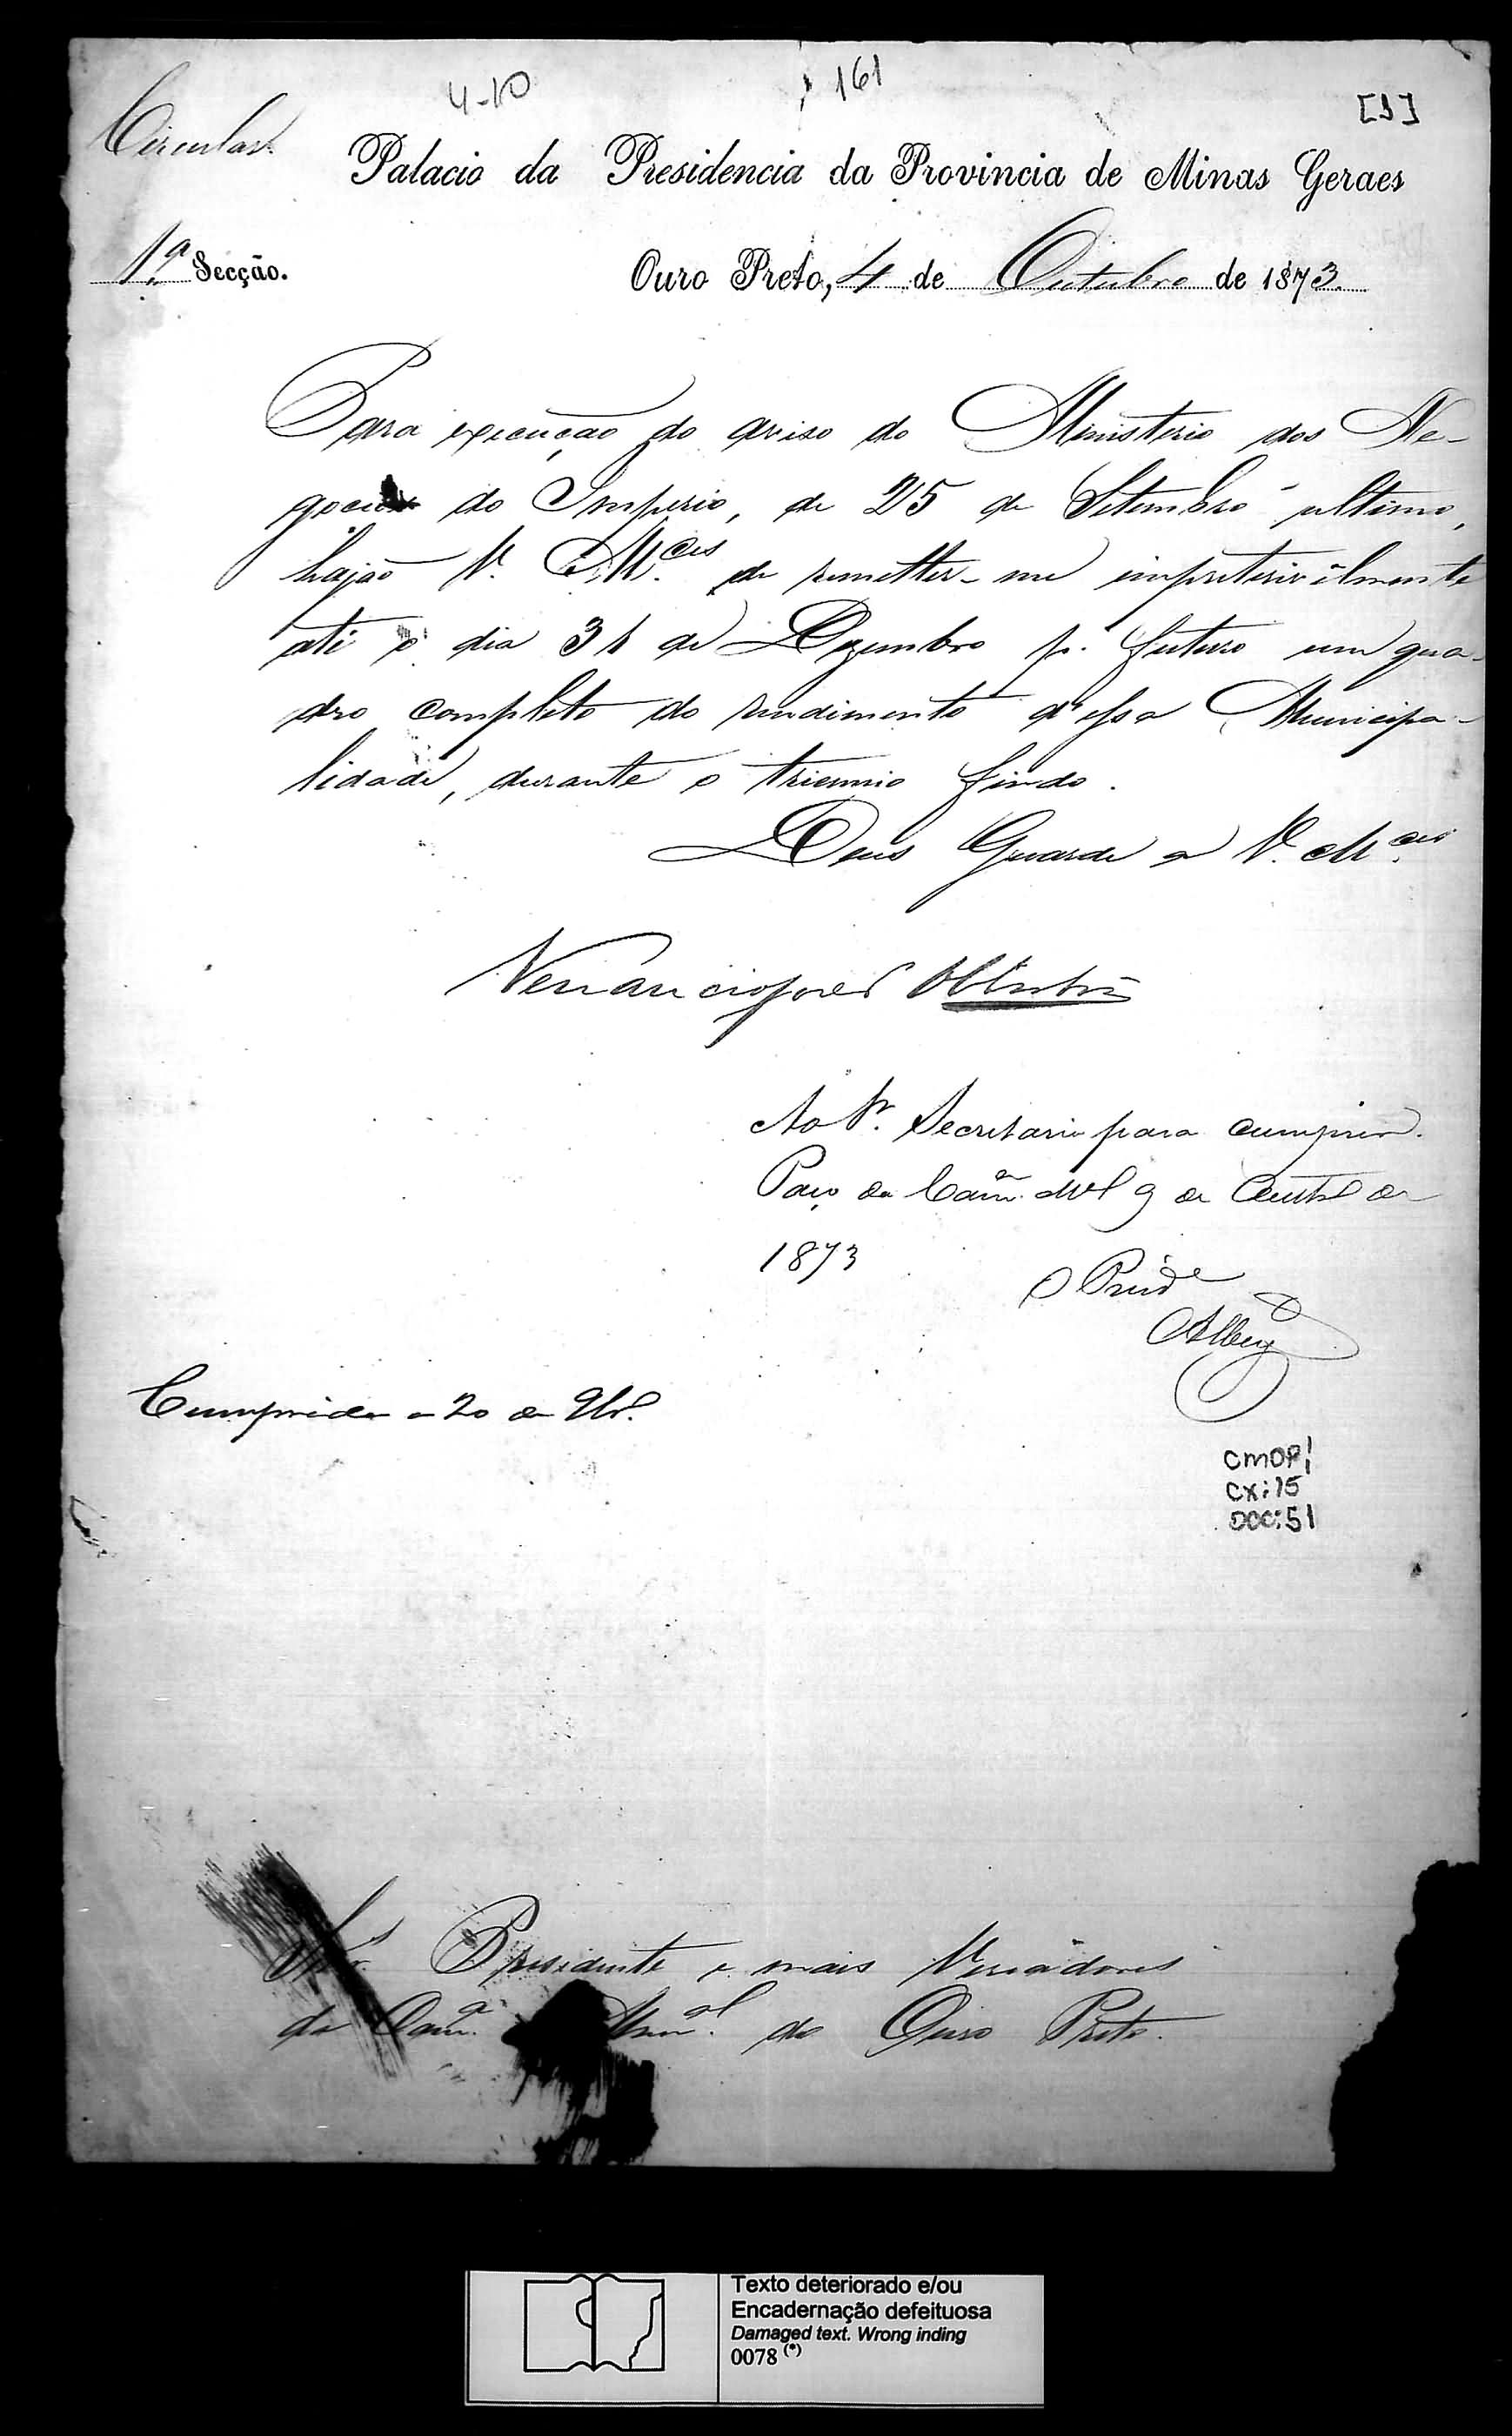 4-10
161
[1]
Circular.
Palacio da Presidencia da Provincia de Minas Geraes
1ª Secção.
Ouro Preto, 4 de Outubro de 1873.
Para execução do aviso do Ministerio dos Ne-
gocios do Imperio, de 25 de Setembro ultimo,
hajão V. M.ces de remetter-me impreterivelmente
até o dia 31 de Dezembro p. futuro um qua-
dro completo do rendimento d'essa Municipa-
lidade, durante o triennio findo.
Deus Guarde a V. M.ces
Venancio José d'Oliveira
Ao Sr. Secretario para cumprir.
Paço da Camª. Mel 9 de Outbº de
1873
O Preside
Cumprida a 20 de
CMOP
CX:15
DOC:51
Snrs. Presidente e mais Vereadores
da Camª. Munal. do Ouro Preto.
Texto deteriorado e/ou
Encadernação defeituosa
Damaged text. Wrong inding
0078 (*)